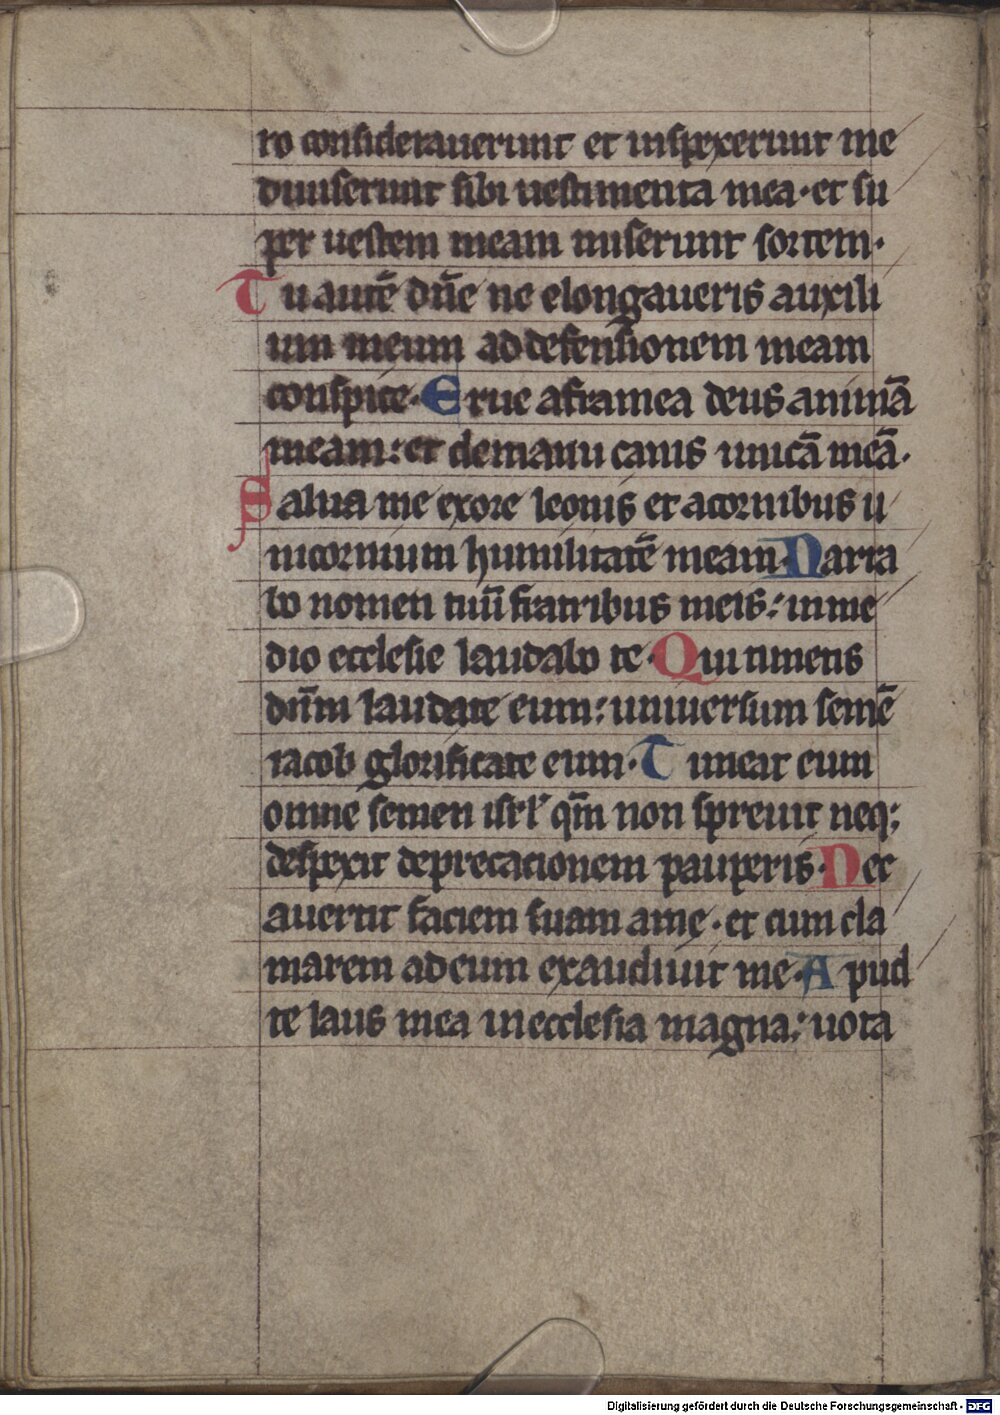 ro considerauerunt et inspexerunt me
diuiserunt sibi uestimenta mea · et su
per uestem meam miserunt sortem ·
Tu autē dn̄e ne elongaueris auxili
um meum ad defensionem meam
conspice · Erue aframea deus animā
meam : et demanu canis unicā meā ·
Salua me exore leonis et acornibus u
nicornium humilitatē meam · Narra
bo nomen tuū fratribus meis : inme
dio ecclesie laudabo te · Qui timetis
dn̄m laudate eum : uniuersum semē
iacob glorificate eum · Timeat eum
omne semen isrl' qm̄ non spreuit neq;
despexit deprecationem pauperis · Nec
auertit faciem suam ame · et cum cla
marem adeum exaudiuit me · Apud
te laus mea inecclesia magna : uota
Digitalisierung gefördert durch die Deutsche Forschungsgemeinschaft - DFG